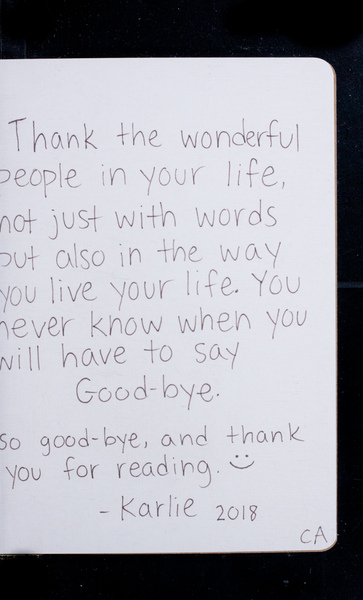 Thank the wonderful
people in your life,
not just with words
but also in the way
you live your life. You
never know when you
will have to say
Good-bye.
so good-bye, and thank
you for reading. :)
- Karlie 2018
CA